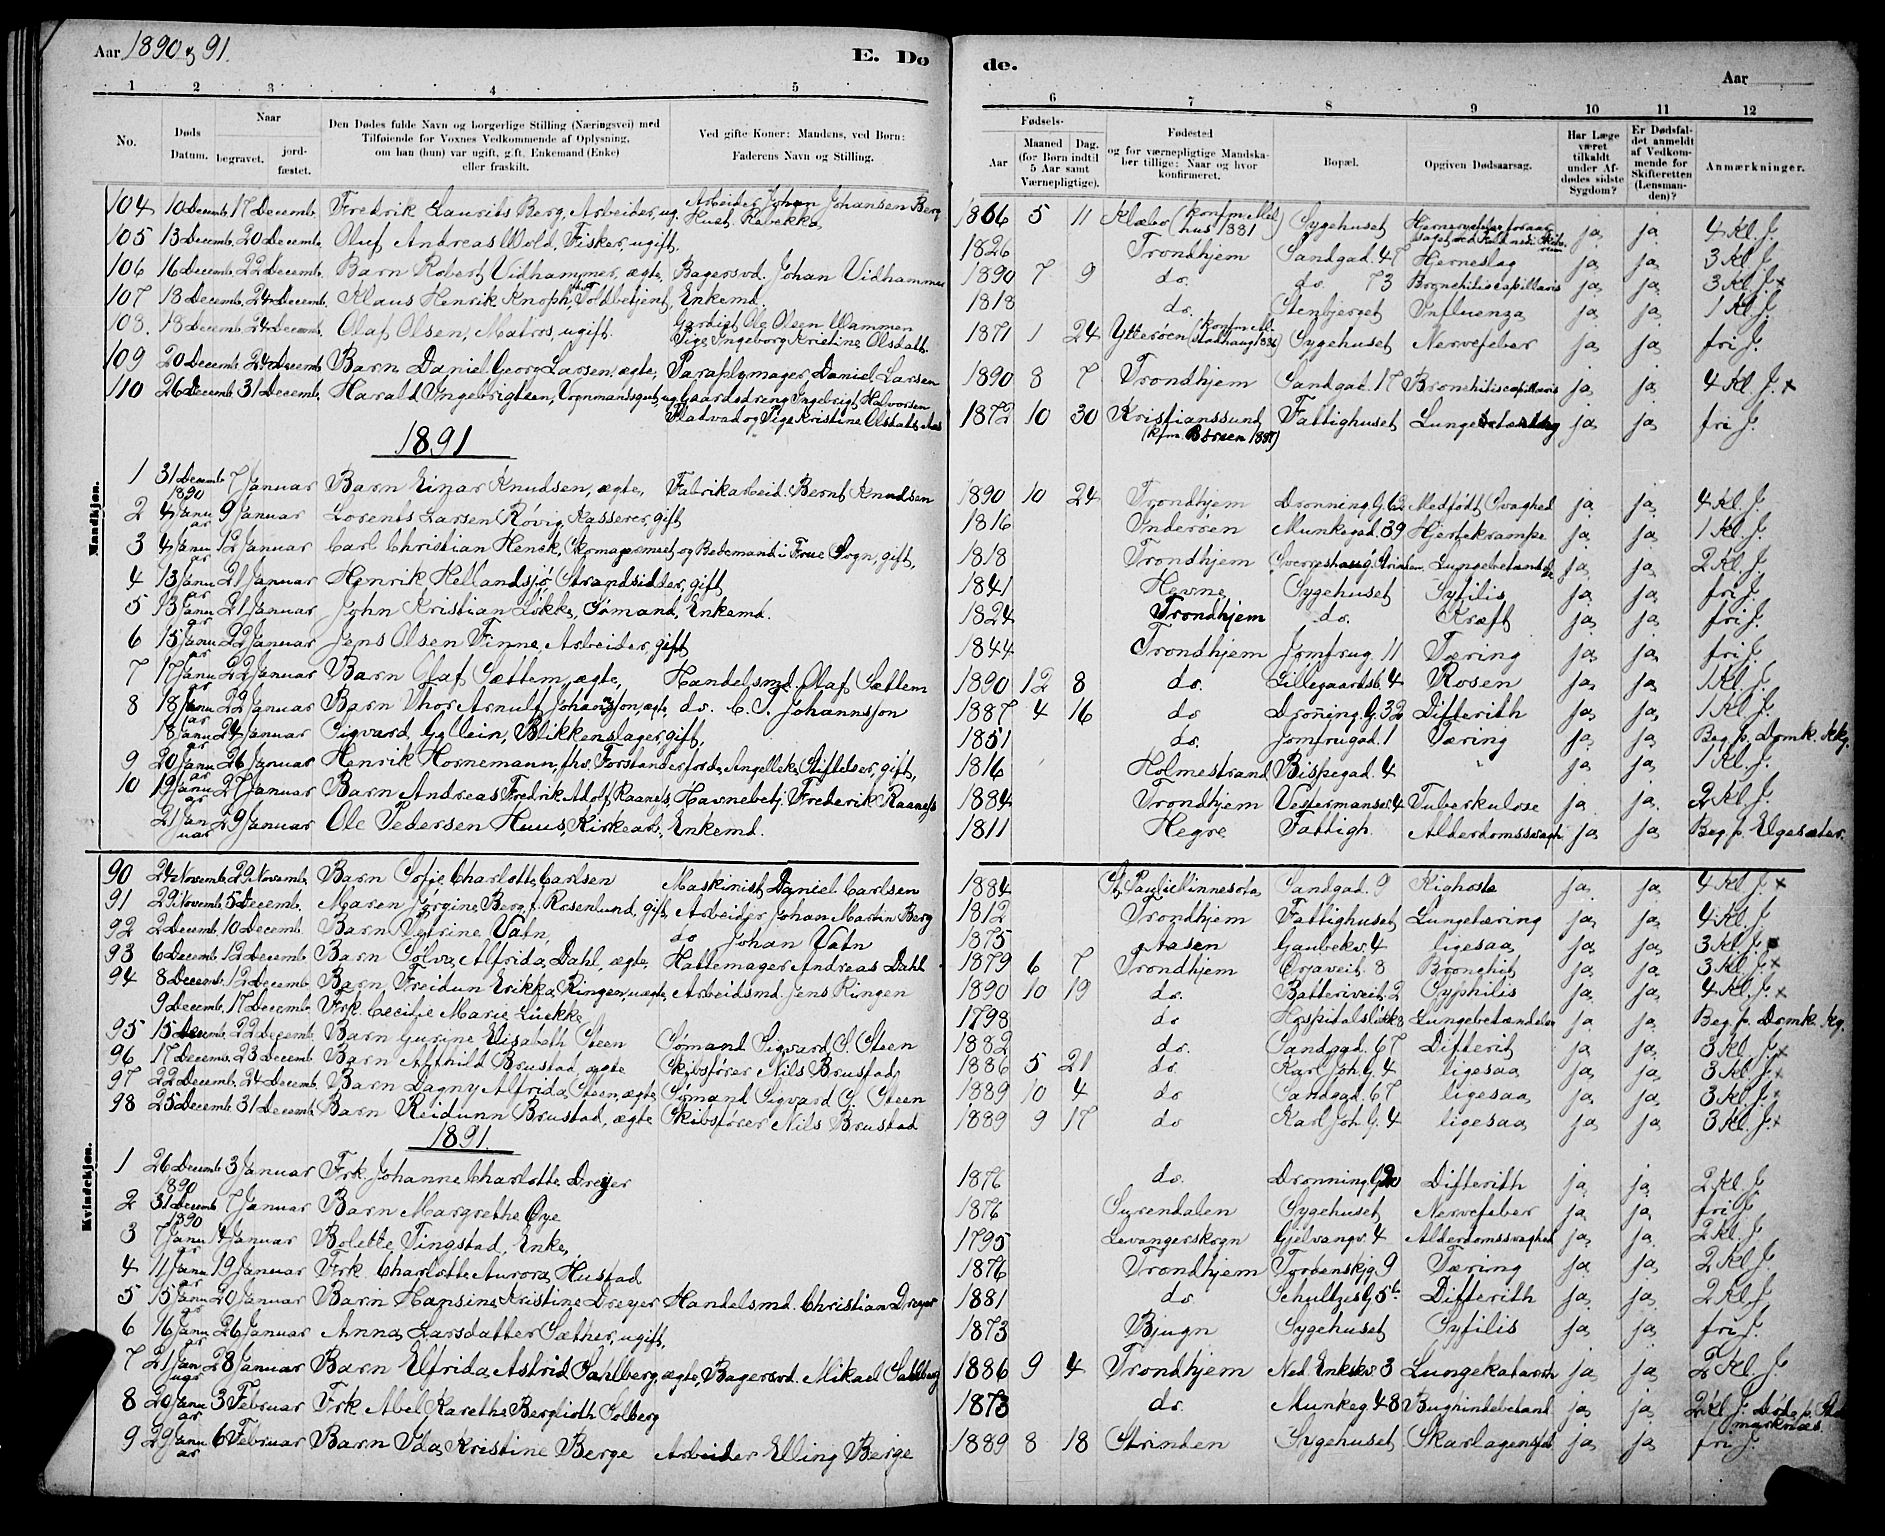 Aar 1890 & 91.
E. Dø
de.
Aar
1 2 3 4 5
6 7 8 9 10 11 12
No.
Døds Datum.
Naar
begravet.
jordfæstet.
Den Dødes fulde Navn og borgerlige Stilling (Næringsvei) med
Tilføiende for Voxnes Vedkommende af Oplysning,
om han (hun) var ugift, gift, Enkemand (Enke)
eller fraskilt.
Ved gifte Koner: Mandens, ved Børn:
Faderens Navn og Stilling.
Fødsels-
Aar
Maaned (for Børn indtil 5 Aar samt Værnepligtige).
Dag.
Fødested
og for værnepligtige Mandskaber tillige: Naar og hvor konfirmeret.
Bopæl.
Opgiven Dødsaarsag.
Har Læge været tilkaldt under Afdødes sidste Sygdom?
Er Dødsfaldet anmeldt af Vedkommende for Skifteretten (Lensmanden)?
Anmærkninger.
Mandkjøn.
104 10 Decemb. 17 Decemb. Fredrik Laurits Berg, Arbeider, ug. Arbeider Johan Johansen Berg Hust. Rebekka 1866 5 11 Klæbo (konf. Melhus 1881) Sygehuset ja ja 4 Kl. J.
105 13 Decemb. 20 Decemb. Oluf Andreas Wold, Fisker, ugift. 1826 Trondhjem Sandgad. 47 Hjerneslag ja ja 3 Kl. J.
106 16 Decemb. 22 Decemb. Barn Robert Vidhammer, ægte, Bagersvd. Johan Vidhammer 1890 7 9 do. do. 73 Bronchitis capillaris ja ja 3 Kl. J. x
107 18 Decemb. 24 Decemb. Klaus Henrik Knoph, Toldbetjent, Enkemd. 1818 do. Stenbjerget Influenza ja ja 1 Kl. J.
108. 18 Decemb. 24 Decemb. Olaf Olsen, Matros, ugift. Gardist Ole Olsen Wammen Pige Ingeborg Kristine Olsdatt. 1871 1 24 Ytterøen Sygehuset Nervefeber ja ja fri J.
109 20 Decemb. 24 Decemb Barn Daniel Georg Larsen, ægte, Paraplymager Daniel Larsen 1890 8 7 Trondhjem Sandgad. 17 Bronchitis capillaris ja ja 4 Kl. J. x
110 26 Decemb. 31 Decemb. Harald Ingebrigtsen, Vognmandsgut, ug. Gaardsdreng Ingebrigt Halvorsen Fladvad og Pige Kristine Olsdatt. Aas 1872 10 30 Kristianssund (kfm. Børsen 1887) Fattighuset ja ja fri J.
1891
1 31 Decemb 1890 7 Januar Barn Einar Knudsen, ægte, Fabrikarbeid. Bernt Knudsen 1890 10 24 Trondhjem Dronning. G. 62 Medfødt Svaghed ja ja 4 Kl. J.
2 4 Januar 9 Januar Lorents Larsen Røvig, Kasserer, gift 1816 Inderøen Munkegad. 39 Hjertekrampe ja ja 1 Kl. J.
3 4 Januar 12 Januar Carl Christian Henck, Skomagermst og Bedemand i Frue Sogn, gift, 1818 Trondhjem Sverreshaug Strinden Lungebetændelse ja ja 2 Kl. J.
4 13 Januar 21 Januar Henrik Hellandsjø Strandsidder, gift 1841 Hevne Sygehuset Syfilis ja ja fri J.
5 13 Januar 21 Januar John Kristian Løkke, Sømand, Enkemd. 1824 Trondhjem do. Kræft ja ja fri J.
6 15 Januar 22 Januar Jens Olsen Finne, Arbeider, gift 1844 Trondhjem Jomfrug. 11 Tæring ja ja fri J.
7 17 Januar 22 Januar Barn Olaf Sættem, ægte, Handelsmd. Olaf Sættem 1890 12 8 do. Lillegaardsb. 4 Rosen ja ja 1 Kl. J.
8 18 Januar 22 Januar Barn Thor Arnulf Johannsson, ægte, do. C. J. Johannsson 1887 4 16 do Droñing. G. 32 Difterith ja ja 1 Kl. J.
18 Januar 24 Januar Sigvard Gyllein, Blikkenslager, gift, 1851 do. Jomfrugad. 1 Tæring ja ja Beg. p. Domk. Kkg.
9 20 Januar 26 Januar Henrik Hornemann, fhv. Forstander for de Angellske Stiftelser, gift, 1816 Holmestrand Bispegad. 4 " ja ja 1 Kl. J.
10 19 Januar 27 Januar Barn Andreas Fredrik Adolf Raanes, Havnebetj. Frederik Raanes 1884 Trondhjem Vestermansv. 4 Tuberkulose ja ja 2 Kl J.
21 Januar 29 Januar Ole Pedersen Huus, Kirkearb., Enkemd. 1811 Hegre Fattigh. Alderdomssvagh ja ja Beg. p. Elgesæter.
Kvindekjøn.
90 24 Novemb. 29 Novemb. Barn Sofie Charlotte Carlsen Maskinist Daniel Carlsen 1884 St. Paul i Minnesota Sandgad. 9 Kighoste ja ja 4 Kl. J. x
91 29 Novemb 5 Decemb. Maren Jørgine Berg f. Rosenlund, gift, Arbeider Johan Martin Berg 1812 Trondhjem Fattighuset Lungetæring ja ja 4 Kl. J
92 2 Decemb. 10 Decemb. Barn Petrine Vatn, do Johan Vatn 1875 Aasen Gaubekv. 4 ligesaa ja ja 3 Kl. J.
93 6 Decemb. 12 Decemb. Barn Sølva Alfrida Dahl, ægte, Hattemager Andreas Dahl 1879 6 7 Trondhjem Ørjaveit. 8 Bronchit ja ja 3 Kl. J. x
94 8 Decemb. 12 Decemb. Barn Freidun Erikka Ringen, uægte, Arbeidsmd. Jens Ringen 1890 10 19 do. Batteriveit. 2 Syphilis ja ja 4 Kl. J. x
9 Decemb. 17 Decemb. Frk. Cecilie Marie Lüekke 1798 do Hospitalsløkk. Lungebetændelse ja ja Beg. p. Domk. Kg.
95 15 Decemb. 22 Decemb. Barn Gurine Elisabeth Steen Sømand Sigvard S. Steen 1882 do. Sandgad. 67 Difterit ja ja 3 Kl. J. x
96 17 Decemb. 23 Decemb Barn Alfhild Brustad, ægte Skibsfører Nils Brustad 1886 5 21 do Karl Joh. G. 4 ligesaa ja ja 3 Kl. J. x
97 22 Decemb. 24 Decemb. Barn Dagny Alfrida Steen, ægte, Sømand Sigvard S. Steen 1889 10 4 do Sandgad. 67 ligesaa ja ja 3 Kl. J. x
98 25 Decemb 31 Decemb Barn Reidunn Brustad, ægte Skibsfører Nils Brustad 1889 9 17 do Karl Joh. G. 4 ligesaa ja ja 3 Kl. J. x
1891.
1 26 Decemb 1890 3 Januar Frk. Johanne Charlotte Dreyer 1876 do. Dronning. G. 20 Difterith ja ja 2 Kl. J
2 31 Decemb 1890 7 Januar Barn Margrethe Øye 1876 Surendalen Sygehuset Nervefeber ja ja fri J
3 7 Januar Januar Bolette Tingstad, Enke, 1795 Levangerskogn Gjelvangv. 4 Alderdomssvaghed ja ja 2 Kl. J.
4 11 Januar 19 Januar Frk. Charlotte Aurora Hustad 1876 Trondhjem Torbenskjg. 9 Tæring ja ja 2 Kl. J
5 15 Januar 20 Januar Barn Hansine Kristine Dreyer Handelsmd. Christian Dreyer 1881 do Schultzes G. 5b Difterith ja ja 2 Kl. J.
6 16 Januar 26 Januar Anna Larsdatter Sæther, ugift, 1873 Bjugn Sygehuset Syfilis ja ja fri J.
7 21 Januar 28 Januar Barn Elfrida Astrid Sahlberg, ægte, Bagersvd. Mikael Sahlberg 1886 9 4 Trondhjem Ned. Enkskv. 3 Lungekatarrh ja ja 2 Kl. J
8 20 Januar 3 Februar Frk Abel Karethe Berglioth Solberg 1873 do. Munkeg 48 Bughindebetænd ja ja 2 Kl. J. Døde p.
9 29 Januar 6 Februar Barn Ida Kristine Berge Arbeider Elling Berge 1889 8 18 Strinden Sygehuset Skarlagensfeb ja ja fri J.